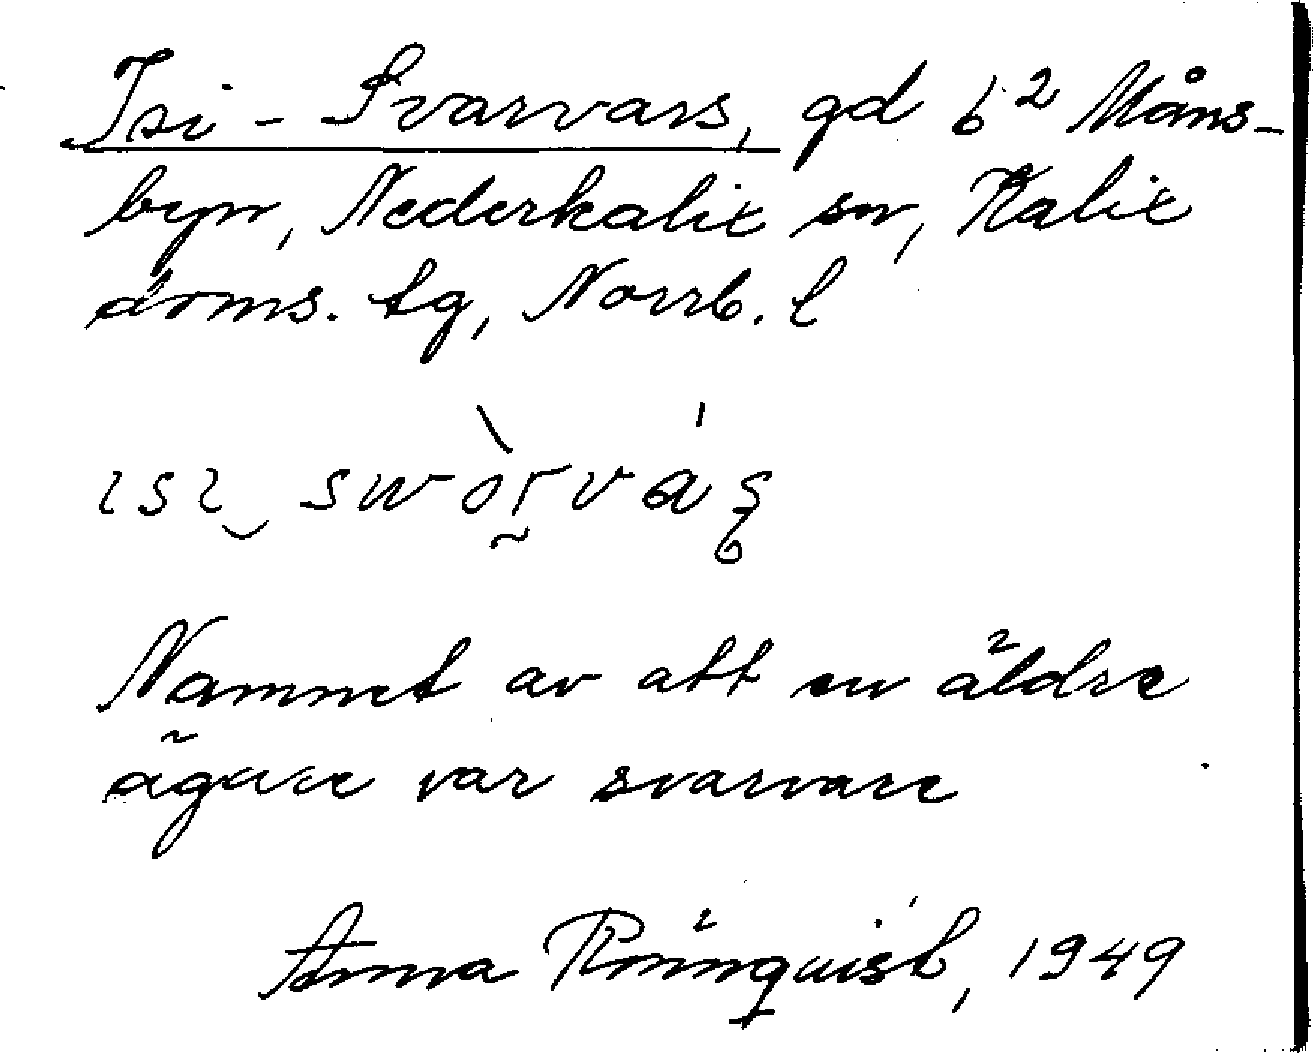 Isi-Svarvars, gd 6² Måns-
byn, Nederkalix sn, Kalix
doms. tg, Norrb. l
ısı swòrvás
Namnet av att en äldre
ägare var svarvare
Anna Rönnquist, 1949